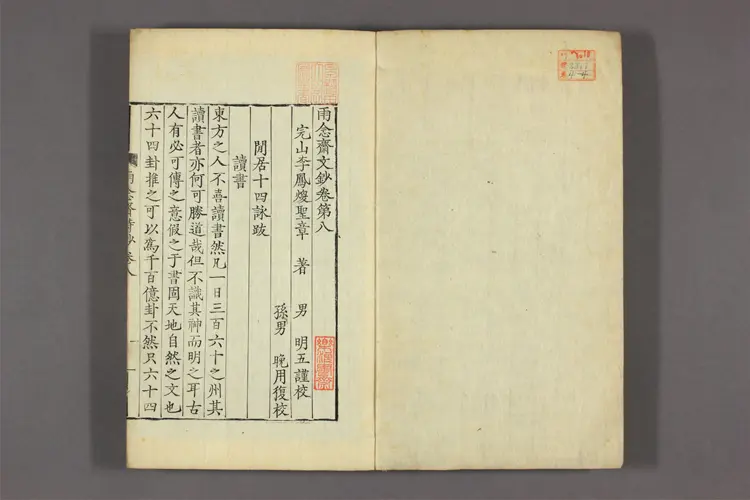 雨念齋文鈔卷第八
完山李鳳煥聖章 著 男 明五謹校
孫男 晩用復校
閒居十四詠跋
讀書
東方之人不喜讀書然凡一日三百六十之州其
讀書者亦何可勝道哉但不識其神而明之耳古
人有必可傳之意假之于書固天地自然之文也
六十四卦推之可以爲千百億卦不然只六十四